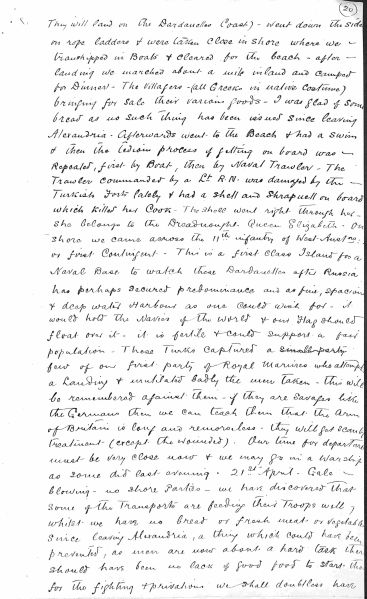 20
They will land on the Dardanelles Coast) - went down the side
on rope ladders & were taken close in shore where we -
transhipped in Boats & cleared for the beach - after -
landing we marched about a mile inland and camped
for Dinner. The Villagers - (all Greeks in native costume)
bringing for sale their various goods - I was glad of some
bread as no such thing has been issued since leaving
Alexandria. Afterwards went to the Beach & had a swim
& then the tedious process of getting on board was -
Repeated, first by Boat, then by Naval Trawler - The
Trawler commanded by a Lt R.N. was damaged by the -
Turkish Forts lately & had a shell and Shrapnell on board
which killed her Cook. The shell went right through her -
She belongs to the Dreadnought Queen Elizabeth - On
shore we came across the 11th infantry of West Aust
or first Contingent - This is a first class Island for a
Naval Base to watch these Dardanelles after Russia
has perhaps secured predominance and as fine, spacious
& deep water Harbour as one could wish for - it
would hold the Navies of the World & our Flag should
float over it - it is fertile & could support a fair
population - Those Turks captured a small party
few of our first party of Royal Marines who attempted
a Landing & mutilated badly the men taken - this will
be remembered against them - if they are savages like
the Germans then we can teach them that the arm
of Britain is long and remorseless - they will get scanty
treatment (except the wounded). Our time for departure
must be very close now & we may go in a Warship
as some did last evening. 21st April - Gale -
blowing - no shore Parties - we have discovered that
some of the Transports are feeding their Troops well,
whilst we have no bread or fresh meat or vegetables
since leaving Alexandria, a thing which could have been
prevented, as men are now about a hard task there
should have been no lack of good food to start them
for the fighting & privations we shall doubtless have